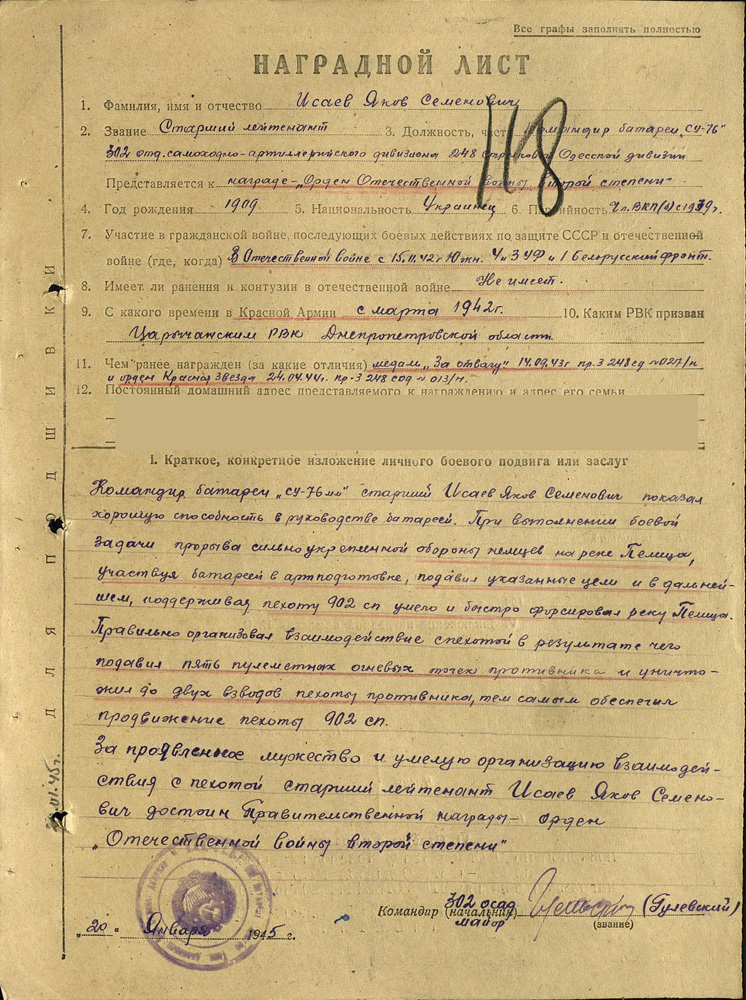 Все графы заполнять полностью
НАГРАДНОЙ ЛИСТ
1. Фамилия, имя и отчество Исаев Яков Семенович
2. Звание Старший лейтенант 3. Должность, часть Командир батареи „СУ-76"
302 отд. самоходно-артиллерийского дивизиона 248 стрелковой Одесской дивизии
Представляется к награде-„Орден Отечественной войны второй степени"
4. Год рождения 1909 5. Национальность Украинец 6. Партийность Чл. ВКП(б) с 1939г.
118
7. Участие в гражданской войне, последующих боевых действиях по защите СССР и отечественной
войне (где, когда) В Отечественной войне с 15.11.42г Южн. 4 и 3 УФ и 1 Белорусский фронт.
8. Имеет ли ранения и контузии в отечественной войне Не имеет.
9. С какого времени в Красной Армии с марта 1942г. 10. Каким РВК призван
Царычанским РВК Днепропетровской области
11. Чем ранее награжден (за какие отличия) медаль „За отвагу" 14.09.43г пр-з 248 сд №027/н
и орден Красная Звезда 24.04.44г. пр-з 248 сод №013/н.
12. Постоянный домашний адрес представляемого к награждению и адрес его семьи
I. Краткое, конкретное изложение личного боевого подвига или заслуг
Командир батареи „СУ-76мм" старший Исаев Яков Семенович показал
хорошую способность в руководстве батареей. При выполнении боевой
задачи прорыва сильно укрепленной обороны немцев на реке Пелица,
участвуя батареей в артподготовке, подавил указанные цели и в дальней-
шем, поддерживая пехоту 902 сп умело и быстро форсировал реку Пелица.
Правильно организовал взаимодействие с пехотой в результате чего
подавил пять пулеметных огневых точек противника и уничто-
жил до двух взводов пехоты противника, тем самым обеспечил
продвижение пехоты 902 сп.
За проявленное мужество и умелую организацию взаимодей-
ствия с пехотой старший лейтенант Исаев Яков Семено-
вич достоин Правительственной награды- орден
„Отечественной войны второй степени"
Командир (начальник) 302 осад
майор (Гулевский)
(звание)
„20" Января 1945 г.
ДЛЯ ПОДШИВКИ